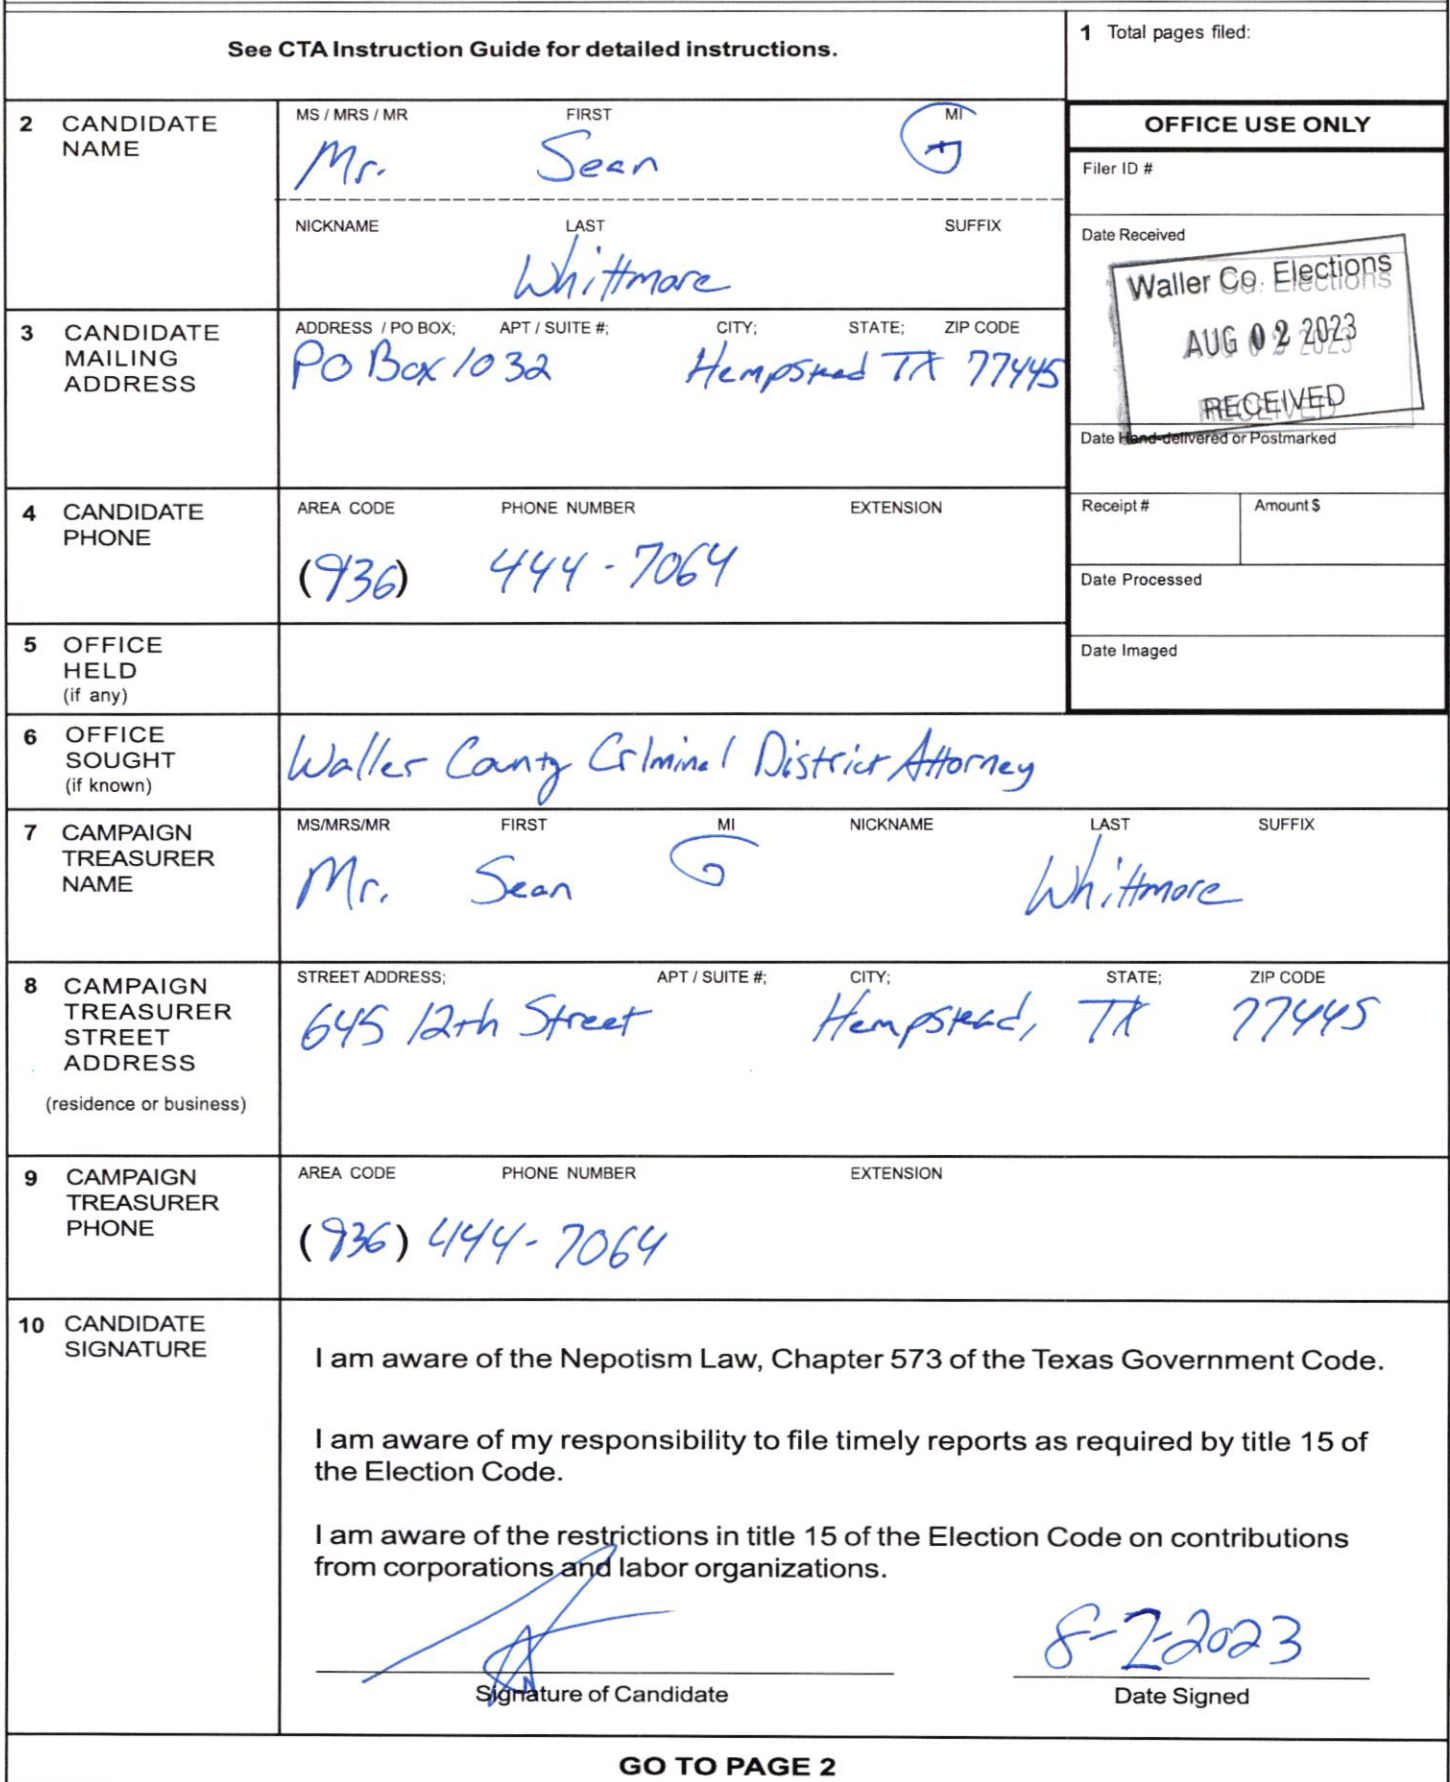 See CTA Instruction Guide for detailed instructions.
1 Total pages filed:
2 CANDIDATE NAME
MS / MRS / MR FIRST MI
Mr. Sean G
NICKNAME LAST SUFFIX
Whittmore
OFFICE USE ONLY
Filer ID #
Date Received
Waller Co. Elections
AUG 02 2023
RECEIVED
Date Hand-delivered or Postmarked
Receipt # Amount $
Date Processed
Date Imaged
3 CANDIDATE MAILING ADDRESS
ADDRESS / PO BOX; APT / SUITE #; CITY; STATE; ZIP CODE
PO Box 1032 Hempstead TX 77445
4 CANDIDATE PHONE
AREA CODE PHONE NUMBER EXTENSION
(936) 444-7064
5 OFFICE HELD (if any)
6 OFFICE SOUGHT (if known)
Waller County Criminal District Attorney
7 CAMPAIGN TREASURER NAME
MS/MRS/MR FIRST MI NICKNAME LAST SUFFIX
Mr. Sean G Whittmore
8 CAMPAIGN TREASURER STREET ADDRESS
(residence or business)
STREET ADDRESS; APT / SUITE #; CITY; STATE; ZIP CODE
645 12th Street Hempstead, TX 77445
9 CAMPAIGN TREASURER PHONE
AREA CODE PHONE NUMBER EXTENSION
(936) 444-7064
10 CANDIDATE SIGNATURE
I am aware of the Nepotism Law, Chapter 573 of the Texas Government Code.
I am aware of my responsibility to file timely reports as required by title 15 of
the Election Code.
I am aware of the restrictions in title 15 of the Election Code on contributions
from corporations and labor organizations.
8-2-2023
Signature of Candidate Date Signed
GO TO PAGE 2